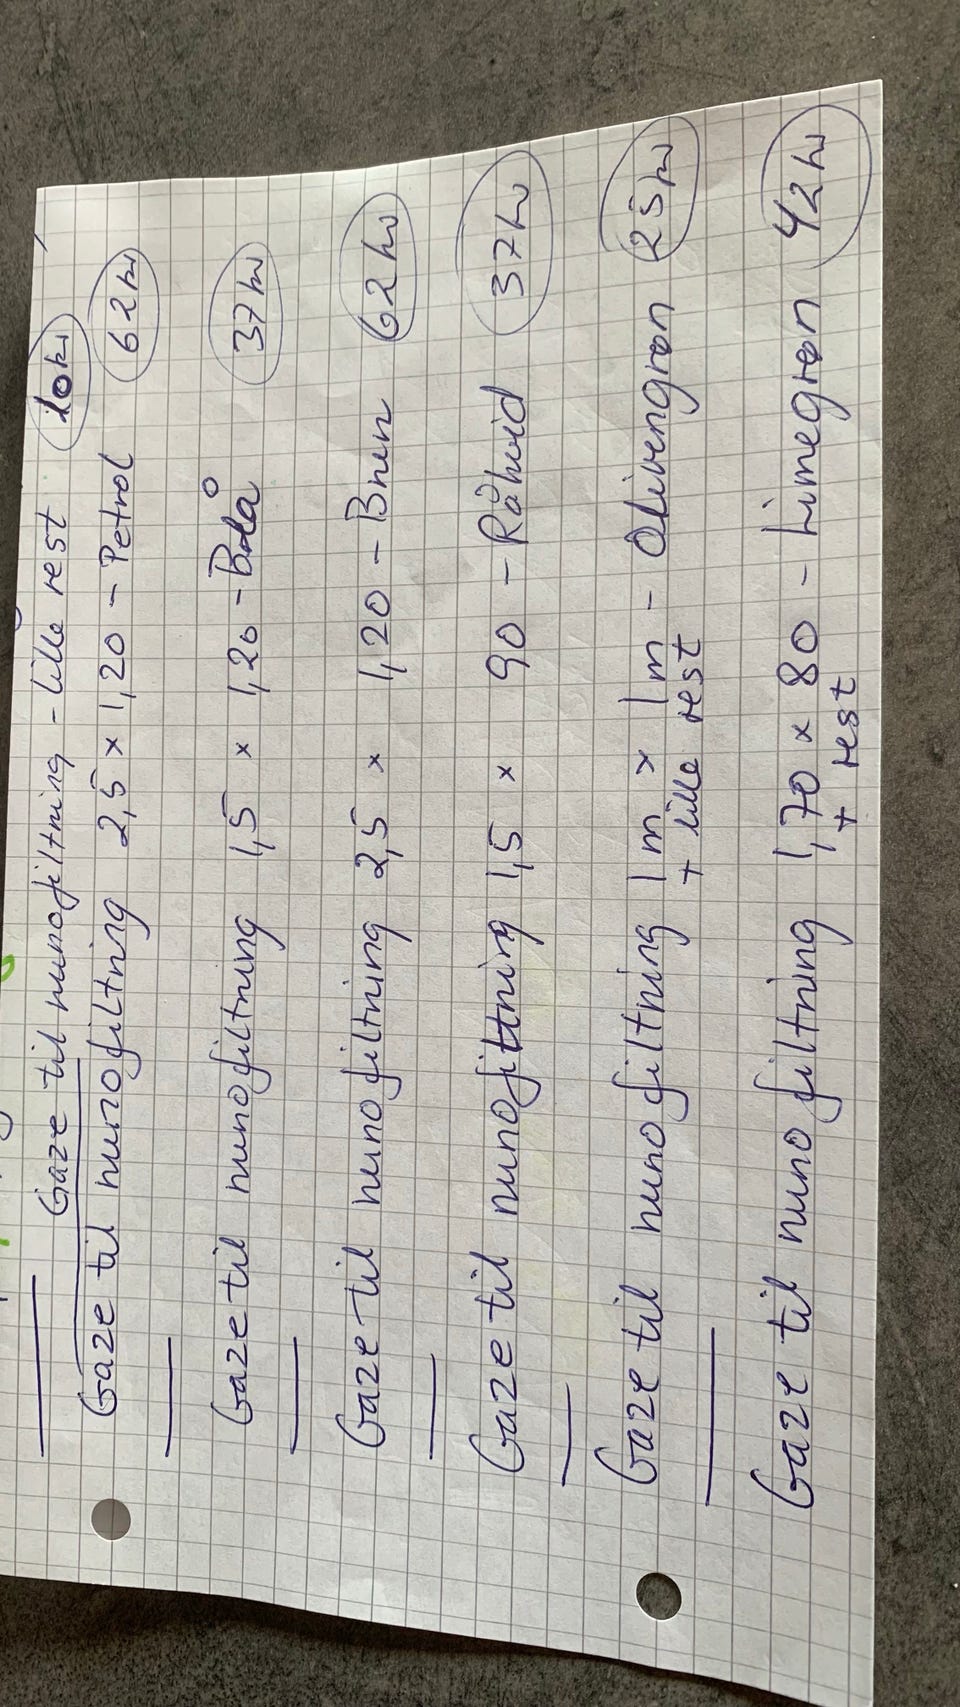 Gaze til nunofiltning - lille rest 10 kr
Gaze til nunofiltning 2,5 x 1,20 - Petrol 62 kr
Gaze til nunofiltning 1,5 x 1,20 - 37 kr
Gaze til nunofiltning 2,5 x 1,20 - Brun 62 kr
Gaze til nunofiltning 1,5 x 90 - Råhvid 37 kr
Gaze til nunofiltning 1 m x 1 m - Olivengrøn 25 kr
+ lille rest
Gaze til nunofiltning 1,70 x 80 - Limegrøn 42 kr
+ rest